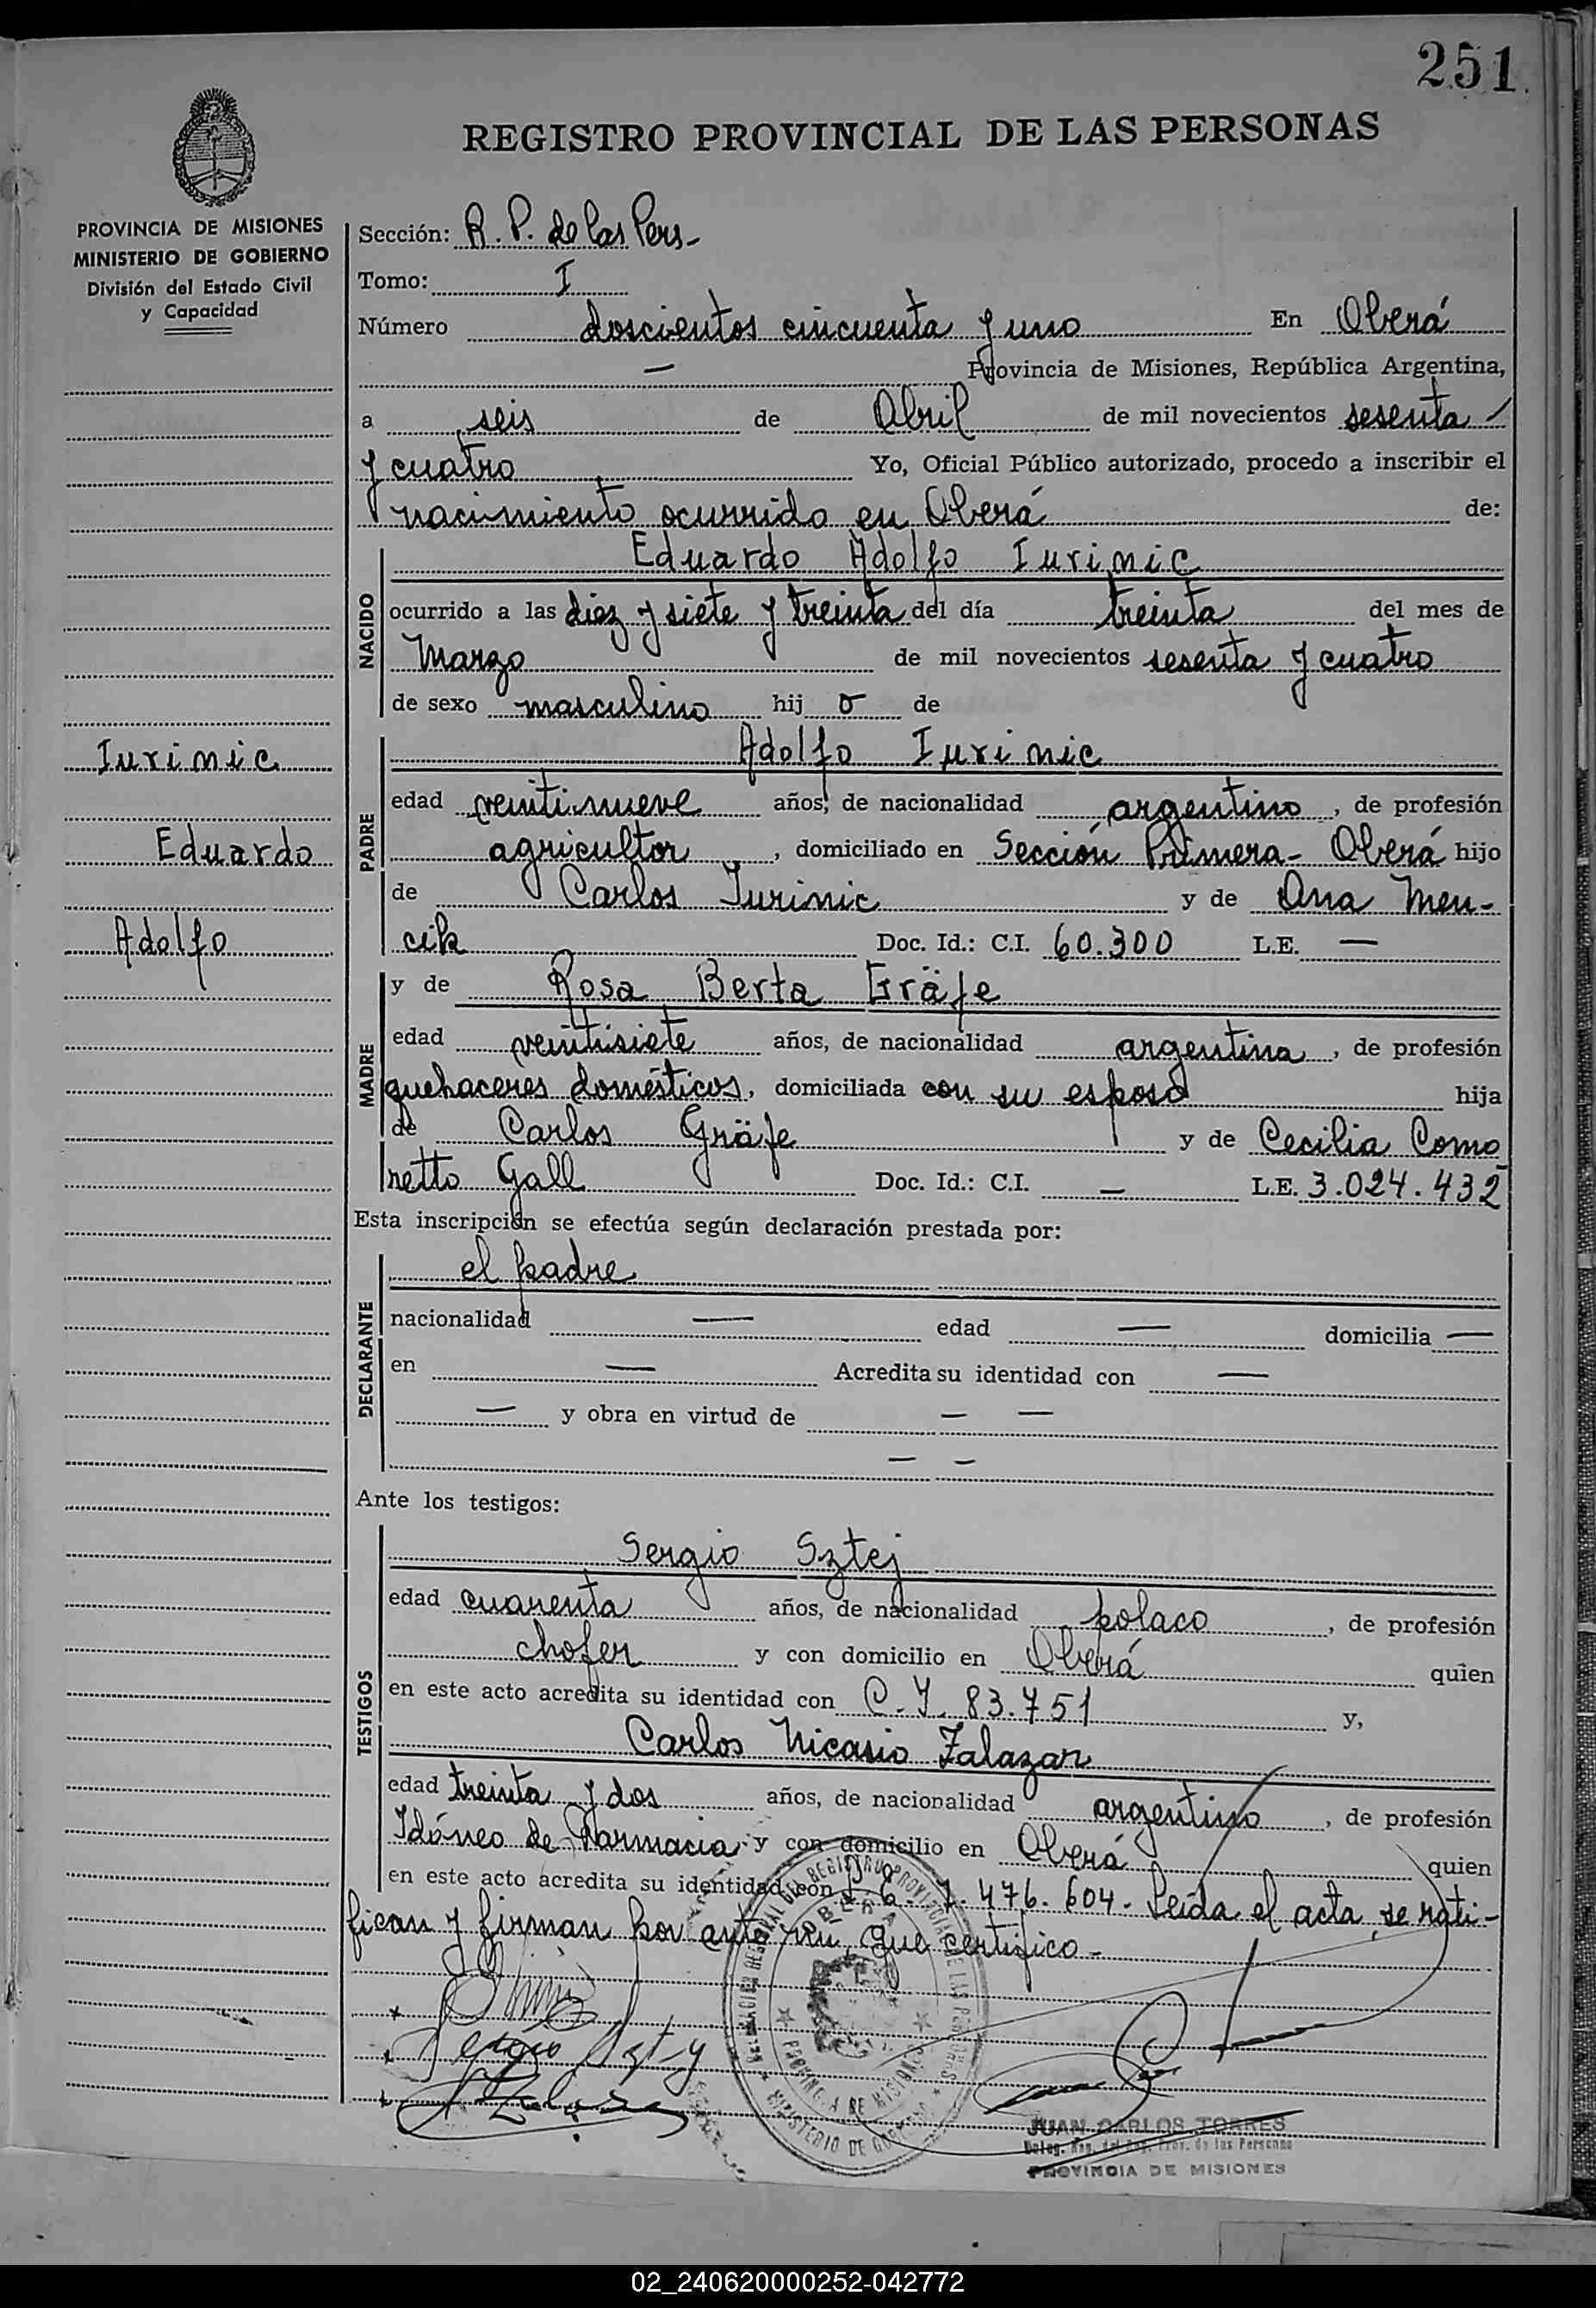 251
REGISTRO PROVINCIAL DE LAS PERSONAS
PROVINCIA DE MISIONES
MINISTERIO DE GOBIERNO
División del Estado Civil
y Capacidad
Sección: R. P. de las Pers-
Tomo: I
Número doscientos cincuenta y uno En Oberá
— Provincia de Misiones, República Argentina,
a seis de Abril de mil novecientos sesenta
y cuatro Yo, Oficial Público autorizado, procedo a inscribir el
nacimiento ocurrido en Oberá de:
NACIDO
Eduardo Adolfo Iurinic
ocurrido a las diez y siete y treinta del día treinta del mes de
Marzo de mil novecientos sesenta y cuatro
de sexo masculino hij o de
Iurinic
Eduardo
Adolfo
PADRE
Adolfo Iurinic
edad veintinueve años, de nacionalidad argentino, de profesión
agricultor, domiciliado en Sección Primera- Oberá hijo
de Carlos Iurinic y de Ana Men-
cik Doc. Id.: C.I. 60.300 L.E. —
MADRE
y de Rosa Berta Gräfe
edad veintisiete años, de nacionalidad argentina, de profesión
quehaceres domésticos, domiciliada con su esposo hija
de Carlos Gräfe y de Cecilia Como
retto Gall Doc. Id.: C.I. — L.E. 3.024.432
Esta inscripción se efectúa según declaración prestada por:
DECLARANTE
el padre
nacionalidad — edad — domicilia —
en — Acredita su identidad con —
— y obra en virtud de — —
— —
Ante los testigos:
TESTIGOS
Sergio Sztej
edad cuarenta años, de nacionalidad polaco, de profesión
chofer y con domicilio en Oberá quien
en este acto acredita su identidad con C.I. 83.751 y,
Carlos Nicasio Zalazar
edad treinta y dos años, de nacionalidad argentino, de profesión
Idóneo de Farmacia y con domicilio en Oberá quien
en este acto acredita su identidad con 476.604- Leída el acta, se rati-
fican y firman por ante mí, que certifico-
Sergio Sztej
PROVINCIA DE MISIONES
MINISTERIO DE GOBIERNO
OBERA
JUAN CARLOS TORRES
Deleg. Reg. del Reg. Prov. de las Personas
PROVINCIA DE MISIONES
02_240620000252-042772